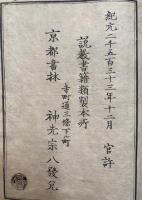 紀元二千五百三十三年十二月 官許
説教書籍類製本所
寺町通三條下ル町
京都書林 神先宗八發兌